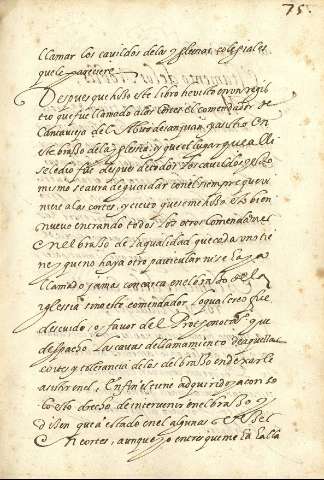 75.
llamar los cavildos de las yglesias colegiales
que le pareciere
Despues que hisse este libro he visto en un regis
tro que fue llamado a las Cortes el comendador de
Cantavieja del Abito de san juan para estro en
este brasso de la yglesia y que el lugar que alli
se le dio fue despues de todos los cavildos y lo
mismo se aura de guardar con el siempre que vi
niere a las cortes, y cierto que se me hisse bien
nuevo entrando todos los otros Comendadores
en el brasso de la qualidad que cada uno tie
ne, y que no haya otro particular ni se haya
llamado jamas con carta en el brasso de la
yglesia sino este comendador, lo qual creo fue
descuido, o favor del Protonotario que
despacho las cartas de llamamiento de aquellas
cortes y tolerancia de los del brasso en dexarle
assistir en el, En fin el tiene adquirido ya con so
lo esto drecho de intervenir en el brasso y
disen que a estado en el algunas
En cortes, aunque yo entre que me ha